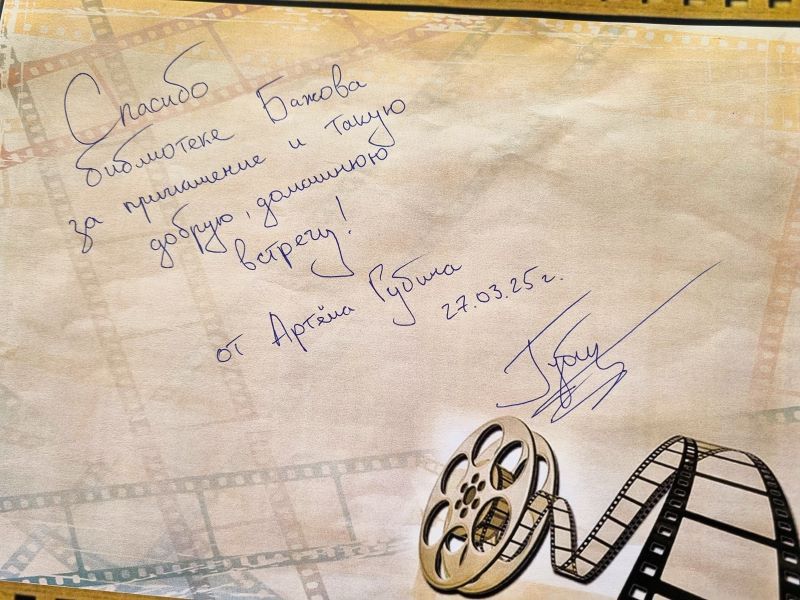 Спасибо
библиотеке Бажова
за приглашение и такую
добрую, домашнюю
встречу!
от Артёма Губина
27.03.25г.